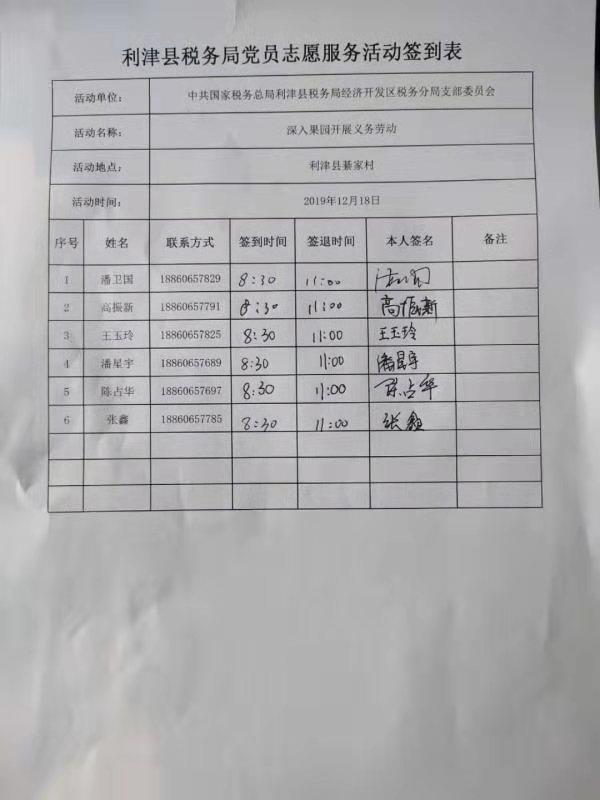 利津县税务局党员志愿服务活动签到表
活动单位： 中共国家税务总局利津县税务局经济开发区税务分局支部委员会
活动名称： 深入果园开展义务劳动
活动地点： 利津县綦家村
活动时间： 2019年12月18日
序号 姓名 联系方式 签到时间 签退时间 本人签名 备注
1 潘卫国 18860657829 8:30 11:00
2 高振新 18860657791 8:30 11:00 高振新
3 王玉玲 18860657825 8:30 11:00 王玉玲
4 潘星宇 18860657689 8:30 11:00 潘星宇
5 陈占华 18860657697 8:30 11:00 陈占华
6 张鑫 18860657785 8:30 11:00 张鑫